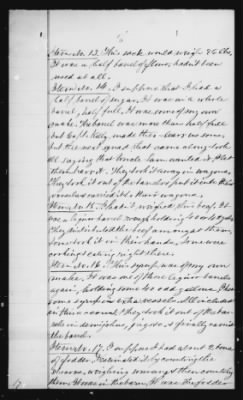 Item No. 13. This sack would weigh 98 lbs.
It was a half barrel of flour, hadn't been
used at all.
Item No. 14. I suppose that I had a
half barrel of sugar. It was in a whole
barrel, half full. It was some of my own
make. The barrel was more than half full
but Capt. Kelly made them leave us some,
but the next squad that came along took
all saying that Uncle Sam wanted it, & let
them have it. They took it away in wagons.
They took it out of the
and carried it to their wagons.
Item No. 15. I hadn't weighed this beef. It
was a liquor barrel
They distributed the beef amongst them,
some took it in their hands, some were
cooking & eating right there.
Item No. 16. This syrup was of my own
make. It was in of these liquor barrels
again, holding some 40 odd gallons. I had
some syrup in extra vessels all included
in this account. They took it out of the
in demijohns, jugs &c. & finally carried
the barrel.
Item No. 17. I suppose I had about a ton
of fodder. I estimated it by counting the
weighing some & then counting
them. It was in the barn. It was the fodder